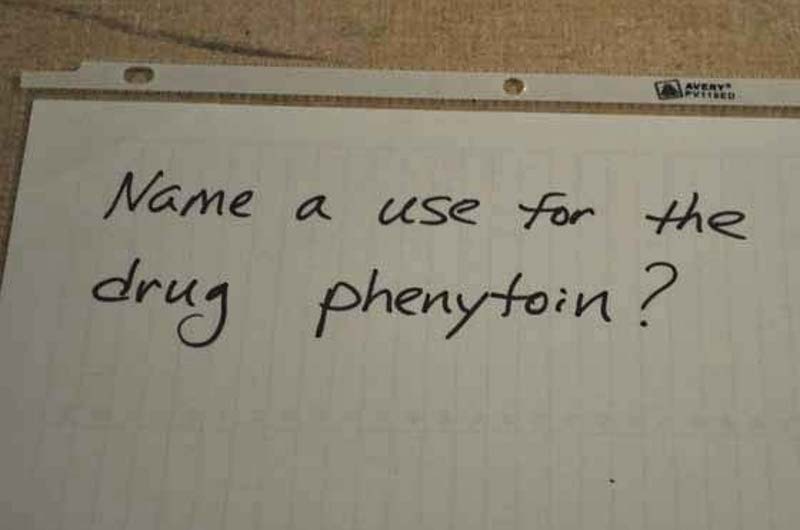 AVERY®
Name a use for the
drug phenytoin?